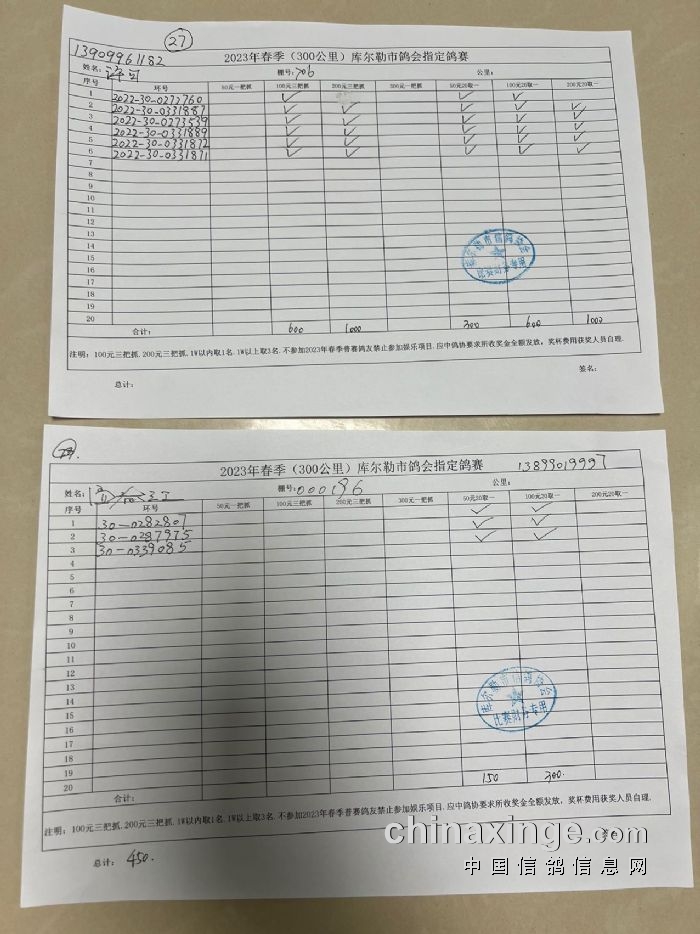 13909961182 27
2023年春季（300公里）库尔勒市鸽会指定鸽赛
姓名: 许可 棚号: 706 公里:
序号 环号 50元一把抓 100元三把抓 200元三把抓 300元一把抓 50元20取一 100元20取一 200元20取一
1 2022-30-0272760 ✓ ✓ ✓
2 2022-30-0331887 ✓ ✓ ✓ ✓ ✓
3 2022-30-0273539 ✓ ✓ ✓ ✓ ✓
4 2022-30-0331889 ✓ ✓ ✓ ✓ ✓
5 2022-30-0331872 ✓ ✓ ✓ ✓ ✓
6 2022-30-0331871 ✓ ✓ ✓ ✓ ✓
7
8
9
10
11
12
13
14
15
16
17
18
19
20
库尔勒市信鸽协会
比赛财务专用
合计: 600 1000 300 600 1000
注明: 100元三把抓. 200元三把抓. 1W以内取1名. 1W以上取3名. 不参加2023年春季普赛鸽友禁止参加娱乐项目. 应中鸽协要求所收奖金全额发放, 奖杯费用获奖人员自理.
签名:
总计:
2023年春季（300公里）库尔勒市鸽会指定鸽赛 13899019997
姓名: 棚号: 000196 公里:
序号 环号 50元一把抓 100元三把抓 200元三把抓 300元一把抓 50元20取一 100元20取一 200元20取一
1 30-0282807 ✓ ✓
2 30-0287975 ✓ ✓
3 30-0339085 ✓ ✓
4
5
6
7
8
9
10
11
12
13
14
15
16
17
18
19
20
库尔勒市信鸽协会
比赛财务专用
合计: 150 300.
注明: 100元三把抓. 200元三把抓. 1W以内取1名. 1W以上取3名. 不参加2023年春季普赛鸽友禁止参加娱乐项目. 应中鸽协要求所收奖金全额发放, 奖杯费用获奖人员自理.
总计: 450.
chinaxinge.com
中国信鸽信息网